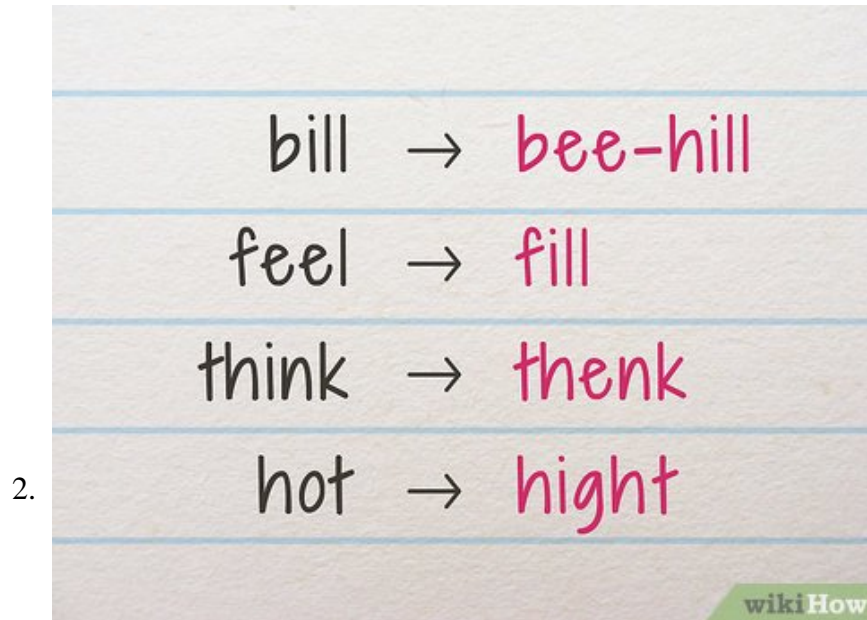 bill → bee-hill
feel → fill
think → thenk
2. hot → hight
wikiHow